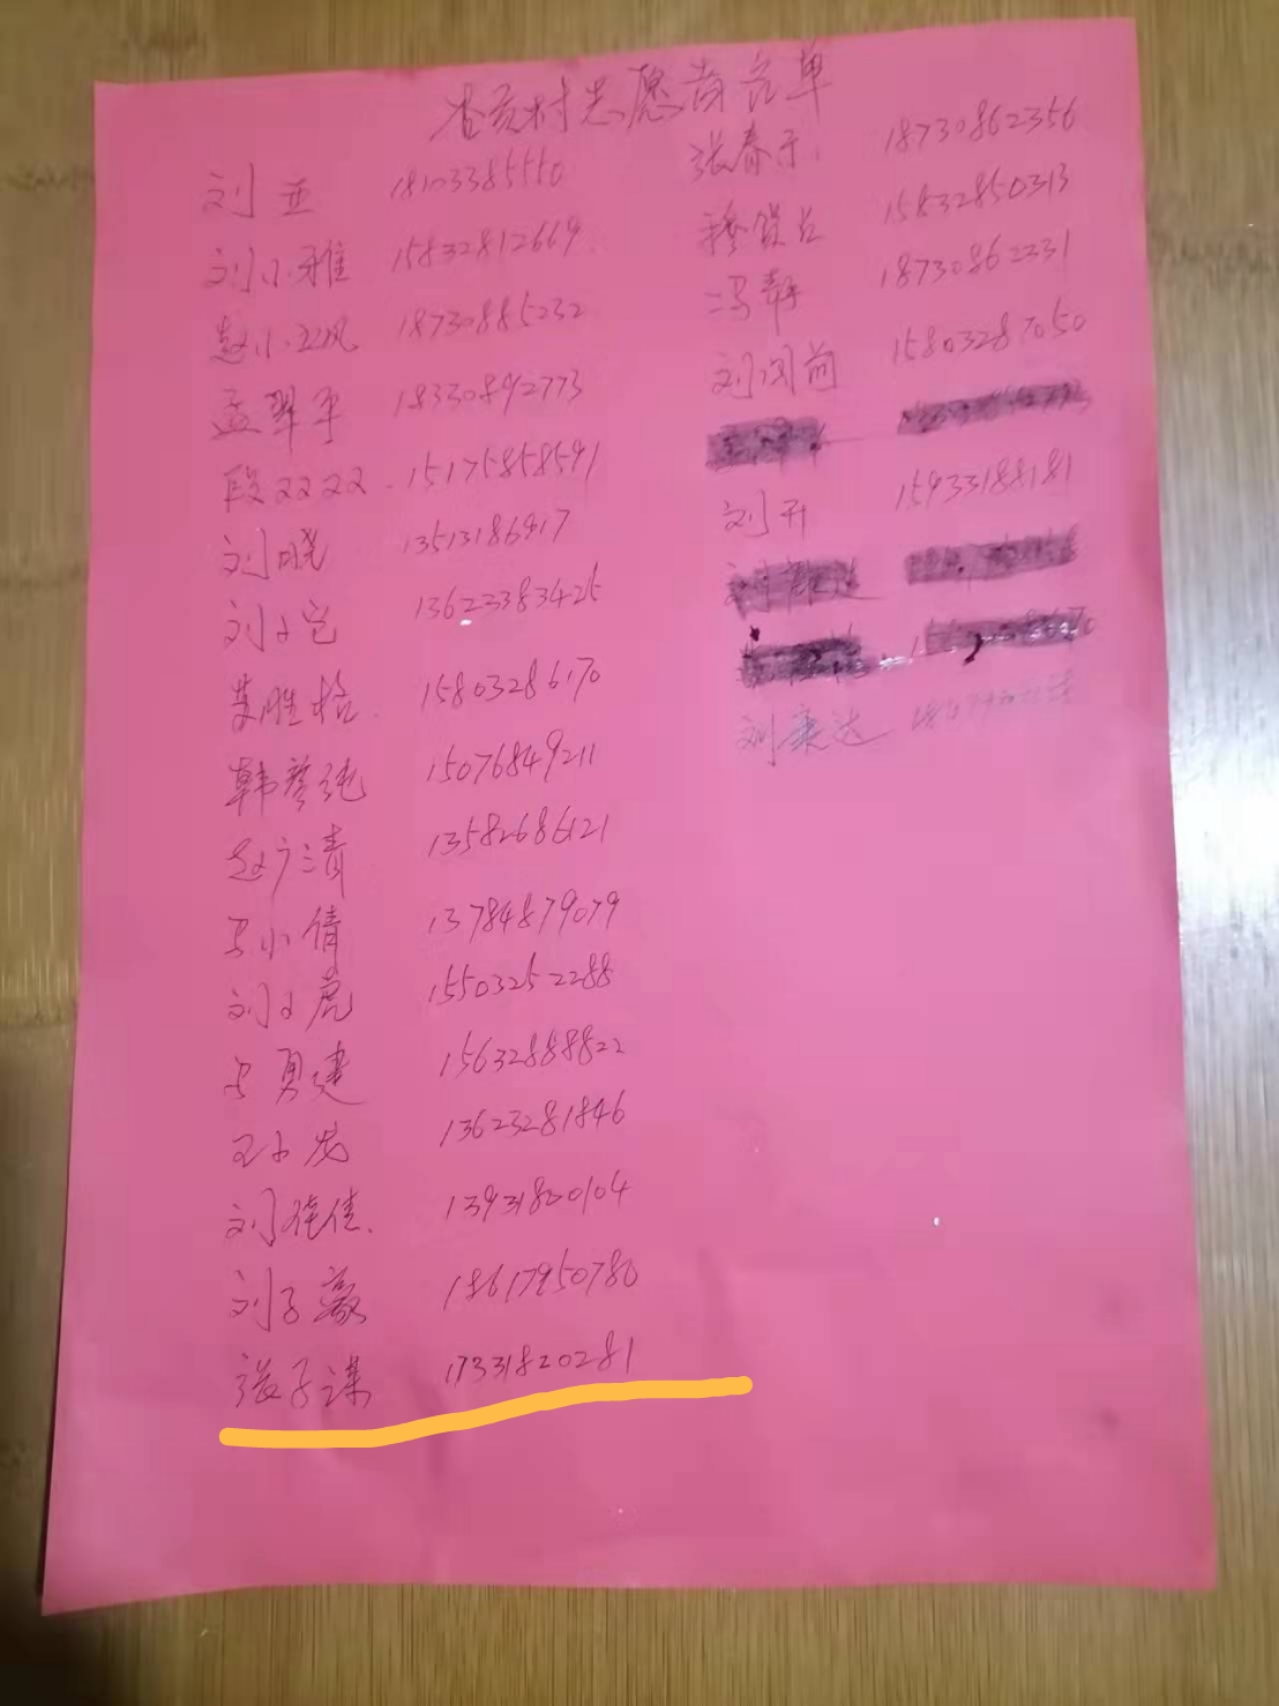 村志愿者名单
刘亚 18103385550
刘小雅 15832812669
赵小凤 18730885232
孟翠平 18330892773
段 15175858591
刘晓 13513186917
刘小宅 13623383425
胜 15803286170
韩彦纯 15076849211
赵广清 13582686121
马小倩 13784879079
刘小虎 15503252288
马勇建 15632888822
王小龙 13623281846
刘佳 13931800104
刘子豪 18617950780
张子谋 17331820281
张春于 18730862356
穆 15832850313
冯静 18730862231
刘闯前 15803287050
刘开 15933188181
刘康达